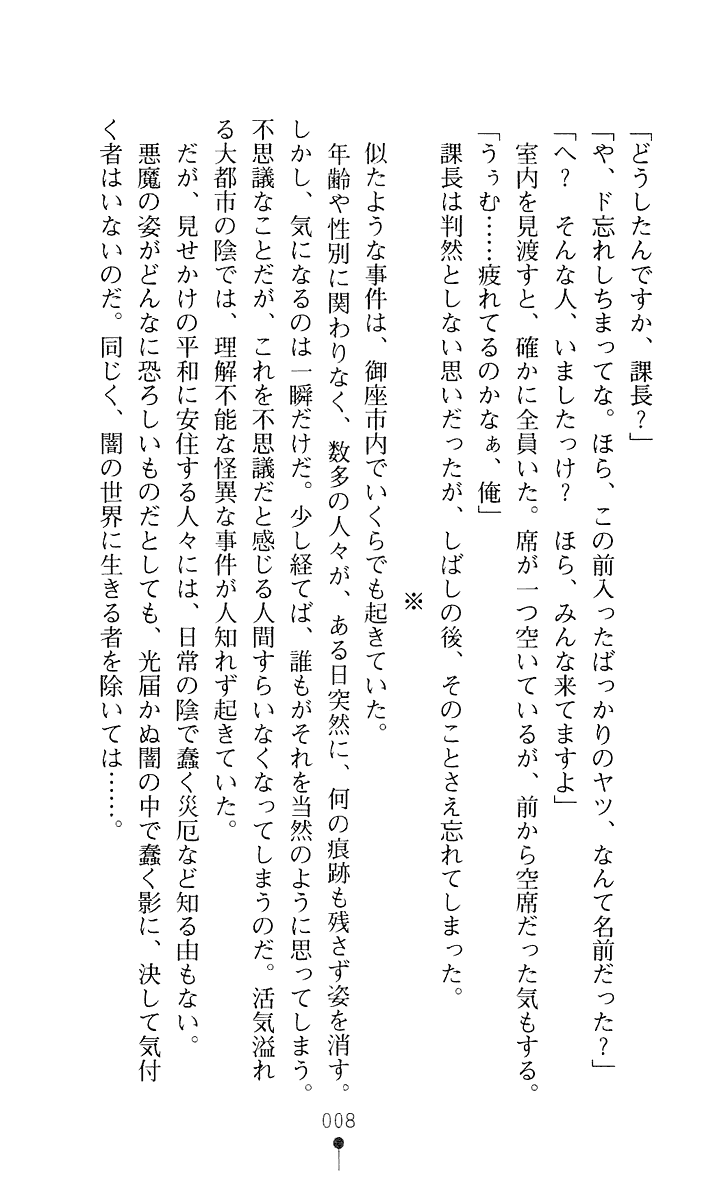 「どうしたんですか、課長？」
「や、ド忘れしちまってな。ほら、この前入ったばっかりのヤツ、なんて名前だった？」
「へ？　そんな人、いましたっけ？　ほら、みんな来てますよ」
室内を見渡すと、確かに全員いた。席が一つ空いているが、前から空席だった気もする。
「うぅむ……疲れてるのかなぁ、俺」
課長は判然としない思いだったが、しばしの後、そのことさえ忘れてしまった。
※
似たような事件は、御座市内でいくらでも起きていた。
年齢や性別に関わりなく、数多の人々が、ある日突然に、何の痕跡も残さず姿を消す。
しかし、気になるのは一瞬だけだ。少し経てば、誰もがそれを当然のように思ってしまう。
不思議なことだが、これを不思議だと感じる人間すらいなくなってしまうのだ。活気溢れ
る大都市の陰では、理解不能な怪異な事件が人知れず起きていた。
だが、見せかけの平和に安住する人々には、日常の陰で蠢く災厄など知る由もない。
悪魔の姿がどんなに恐ろしいものだとしても、光届かぬ闇の中で蠢く影に、決して気付
く者はいないのだ。同じく、闇の世界に生きる者を除いては……。
008